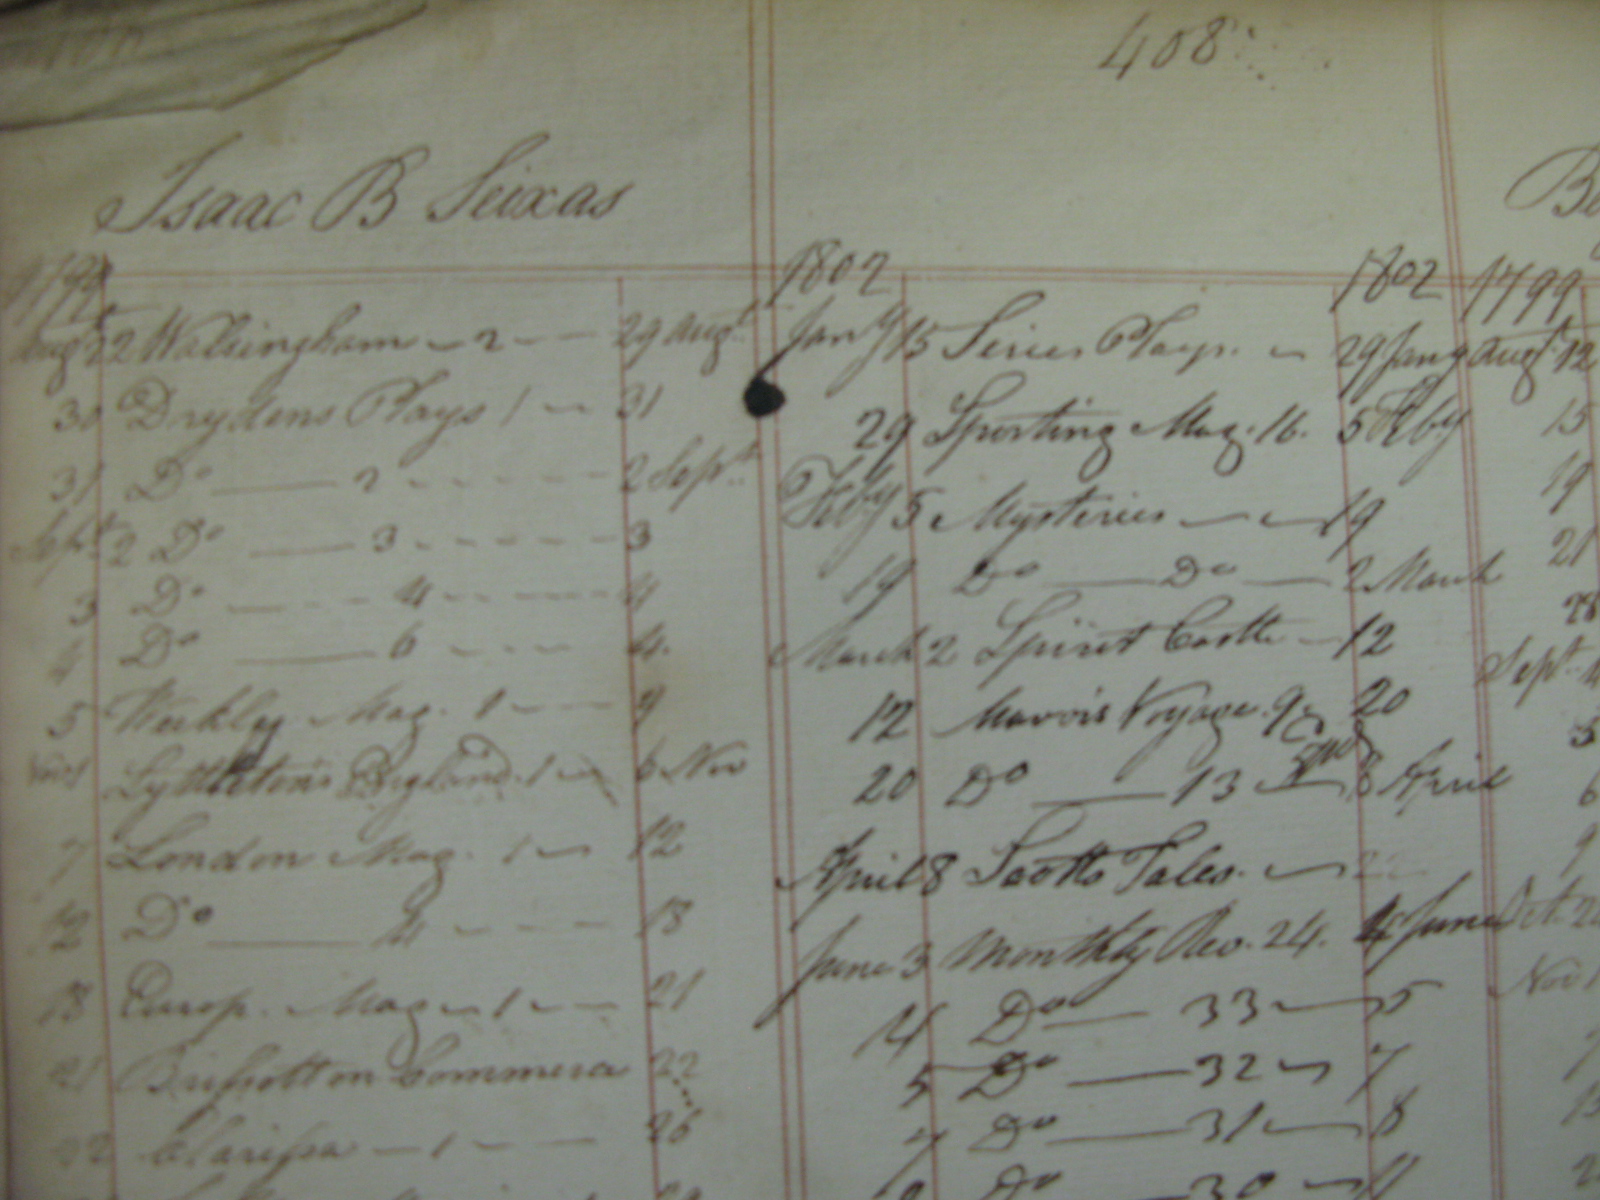 408
Isaac B Seixas
Augt 22 Walsingham 2 29 Augt
30 Drydens Plays 1 31
31 Do 2 2 Sept
Sept 2 Do 3 3
3 Do 4 4
4 Do 6 4
5 Weekly Mag. 1 9
Nov 1 Lyttletons England 1 6 Nov
7 London Mag. 1 12
12 Do 18
18 Europ. Mag 1 21
21 Brissott on Commerce 22
22 Clarissa 1 26
1802 1802
Jany 15 Series Plays. 29 Jany
29 Sporting Mag. 16. 5 Feby
Feby 5 Mysteries 19
19 Do Do 2 March
March 2 Spirit Castle 12
12 Mavors Voyage. 9 20
20 Do 13 8 April
April 8 Scotts Tales. 22
June 3 Monthly Rev. 24. 4 June
4 Do 33 5
5 Do 32 7
7 Do 31 8
Do 30 11
1799
Augt 12
15
19
21
28
Sept
5
6
9
Oct
Nov